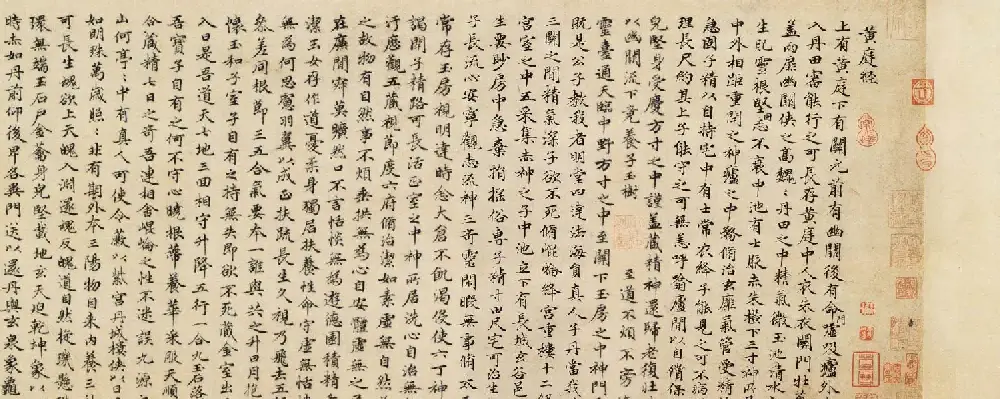 黃庭經
上有黃庭下有關元前有幽關後有命門噓吸廬外
入丹田審能行之可長存黃庭中人衣朱衣關門壯
蓋兩扉幽關俠之高巍丹田之中精氣微玉池清水
生肥靈根堅志不衰中池有士服赤朱橫下三寸神所
中外相距重閉之神廬之中務脩治玄癰氣管受精
急固子精以自持宅中有士常衣絳子能見之可不病
理長尺約其上子能守之可無恙呼噏廬間以自償保
兒堅身受慶方寸之中謹蓋藏精神還歸老復壯
以幽關流下竟養子玉樹 至道不煩不旁
靈臺通天臨中野方寸之中至關下玉房之中神門
既是公子教我者明堂四達法海員真人子丹當我
三關之間精氣深子欲不死脩崐崘絳宮重樓十二
宮室之中五采集赤神之子中池立下有長城玄谷邑
生要眇房中急棄捐俗專子精寸田尺宅可治生
子長流心安寧觀志流神三奇靈閒暇無事脩太
常存玉房視明達時念大倉不飢渴役使六丁神
謁閉子精路可長活正室之中神所居洗心自治無
汙歷觀五藏視節度六府脩治潔如素虛無自然
之故物有自然事不煩垂拱無為心自安體虛無之
在廣間寂莫曠然口不言恬惔無為遊德園積精
潔玉女存作道憂柔身獨居扶養性命守虛無恬
無為何思慮羽翼以成正扶疏長生久視乃飛去五
參差同根節三五合氣要本一誰與共之升日月抱
懷玉和子室子自有之持無失即欲不死藏金室出
入日是吾道天七地三回相守升降五行一合九玉石落
吾寶子自有之何不守心曉根蔕養華采服天順
合藏精七日之奇吾連相舍崐崘之性不迷誤九源
山何亭亭中有真人可使令蔽以紫宮丹城樓俠以日
如明珠萬歲照照非有期外本三陽物自來內養三
可長生魂欲上天魄入淵還魂反魄道自然旋璣懸
環無端玉石戶金籥身兒堅載地玄天迫乾坤象以
時赤如丹前仰後卑各異門送以還丹與玄泉象龜